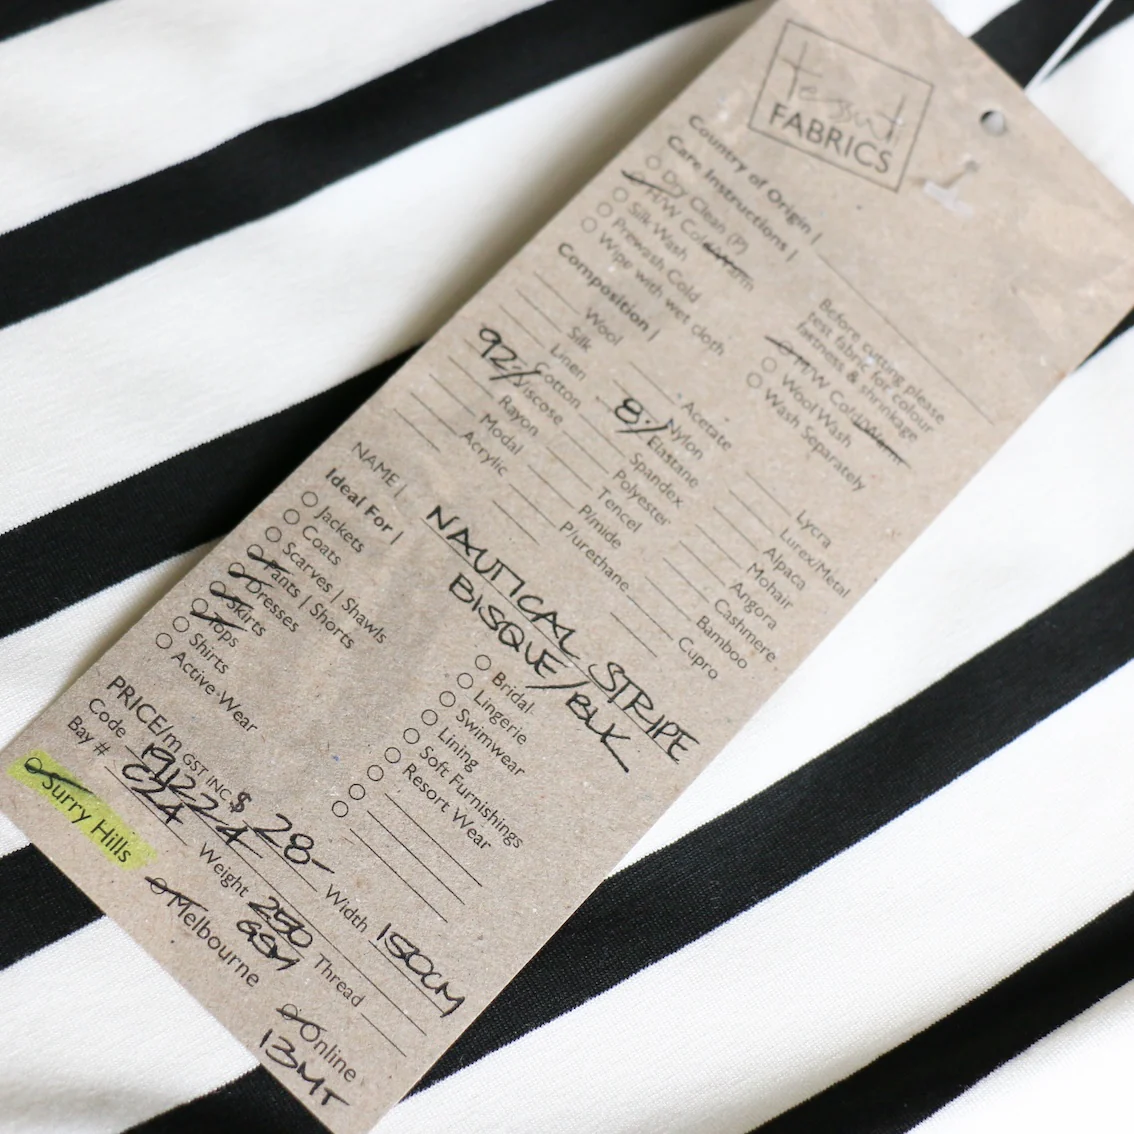 tessuti
FABRICS
Country of Origin |
Care Instructions |
Dry Clean (P)
H/W Cold/Warm
Silk Wash
Prewash Cold
Wipe with wet cloth
Before cutting please
test fabric for colour
fastness & shrinkage
M/W Cold/Warm
Wool Wash
Wash Separately
Composition |
Wool
Silk
Linen
92% Cotton
Viscose
Rayon
Modal
Acrylic
Acetate
Nylon
8% Elastane
Spandex
Polyester
Tencel
P/mide
P/urethane
Lycra
Lurex/Metal
Alpaca
Mohair
Angora
Cashmere
Bamboo
Cupro
NAME | NAUTICAL STRIPE
BISQUE/BLK
Ideal For |
Jackets
Coats
Scarves | Shawls
Pants | Shorts
Dresses
Skirts
Tops
Shirts
Active Wear
Bridal
Lingerie
Swimwear
Lining
Soft Furnishings
Resort Wear
PRICE/m GST INC $ 28-
Width 150CM
Code 191224
Weight 250 GSM
Thread
Bay # C24
Surry Hills
Melbourne
Online
13MT